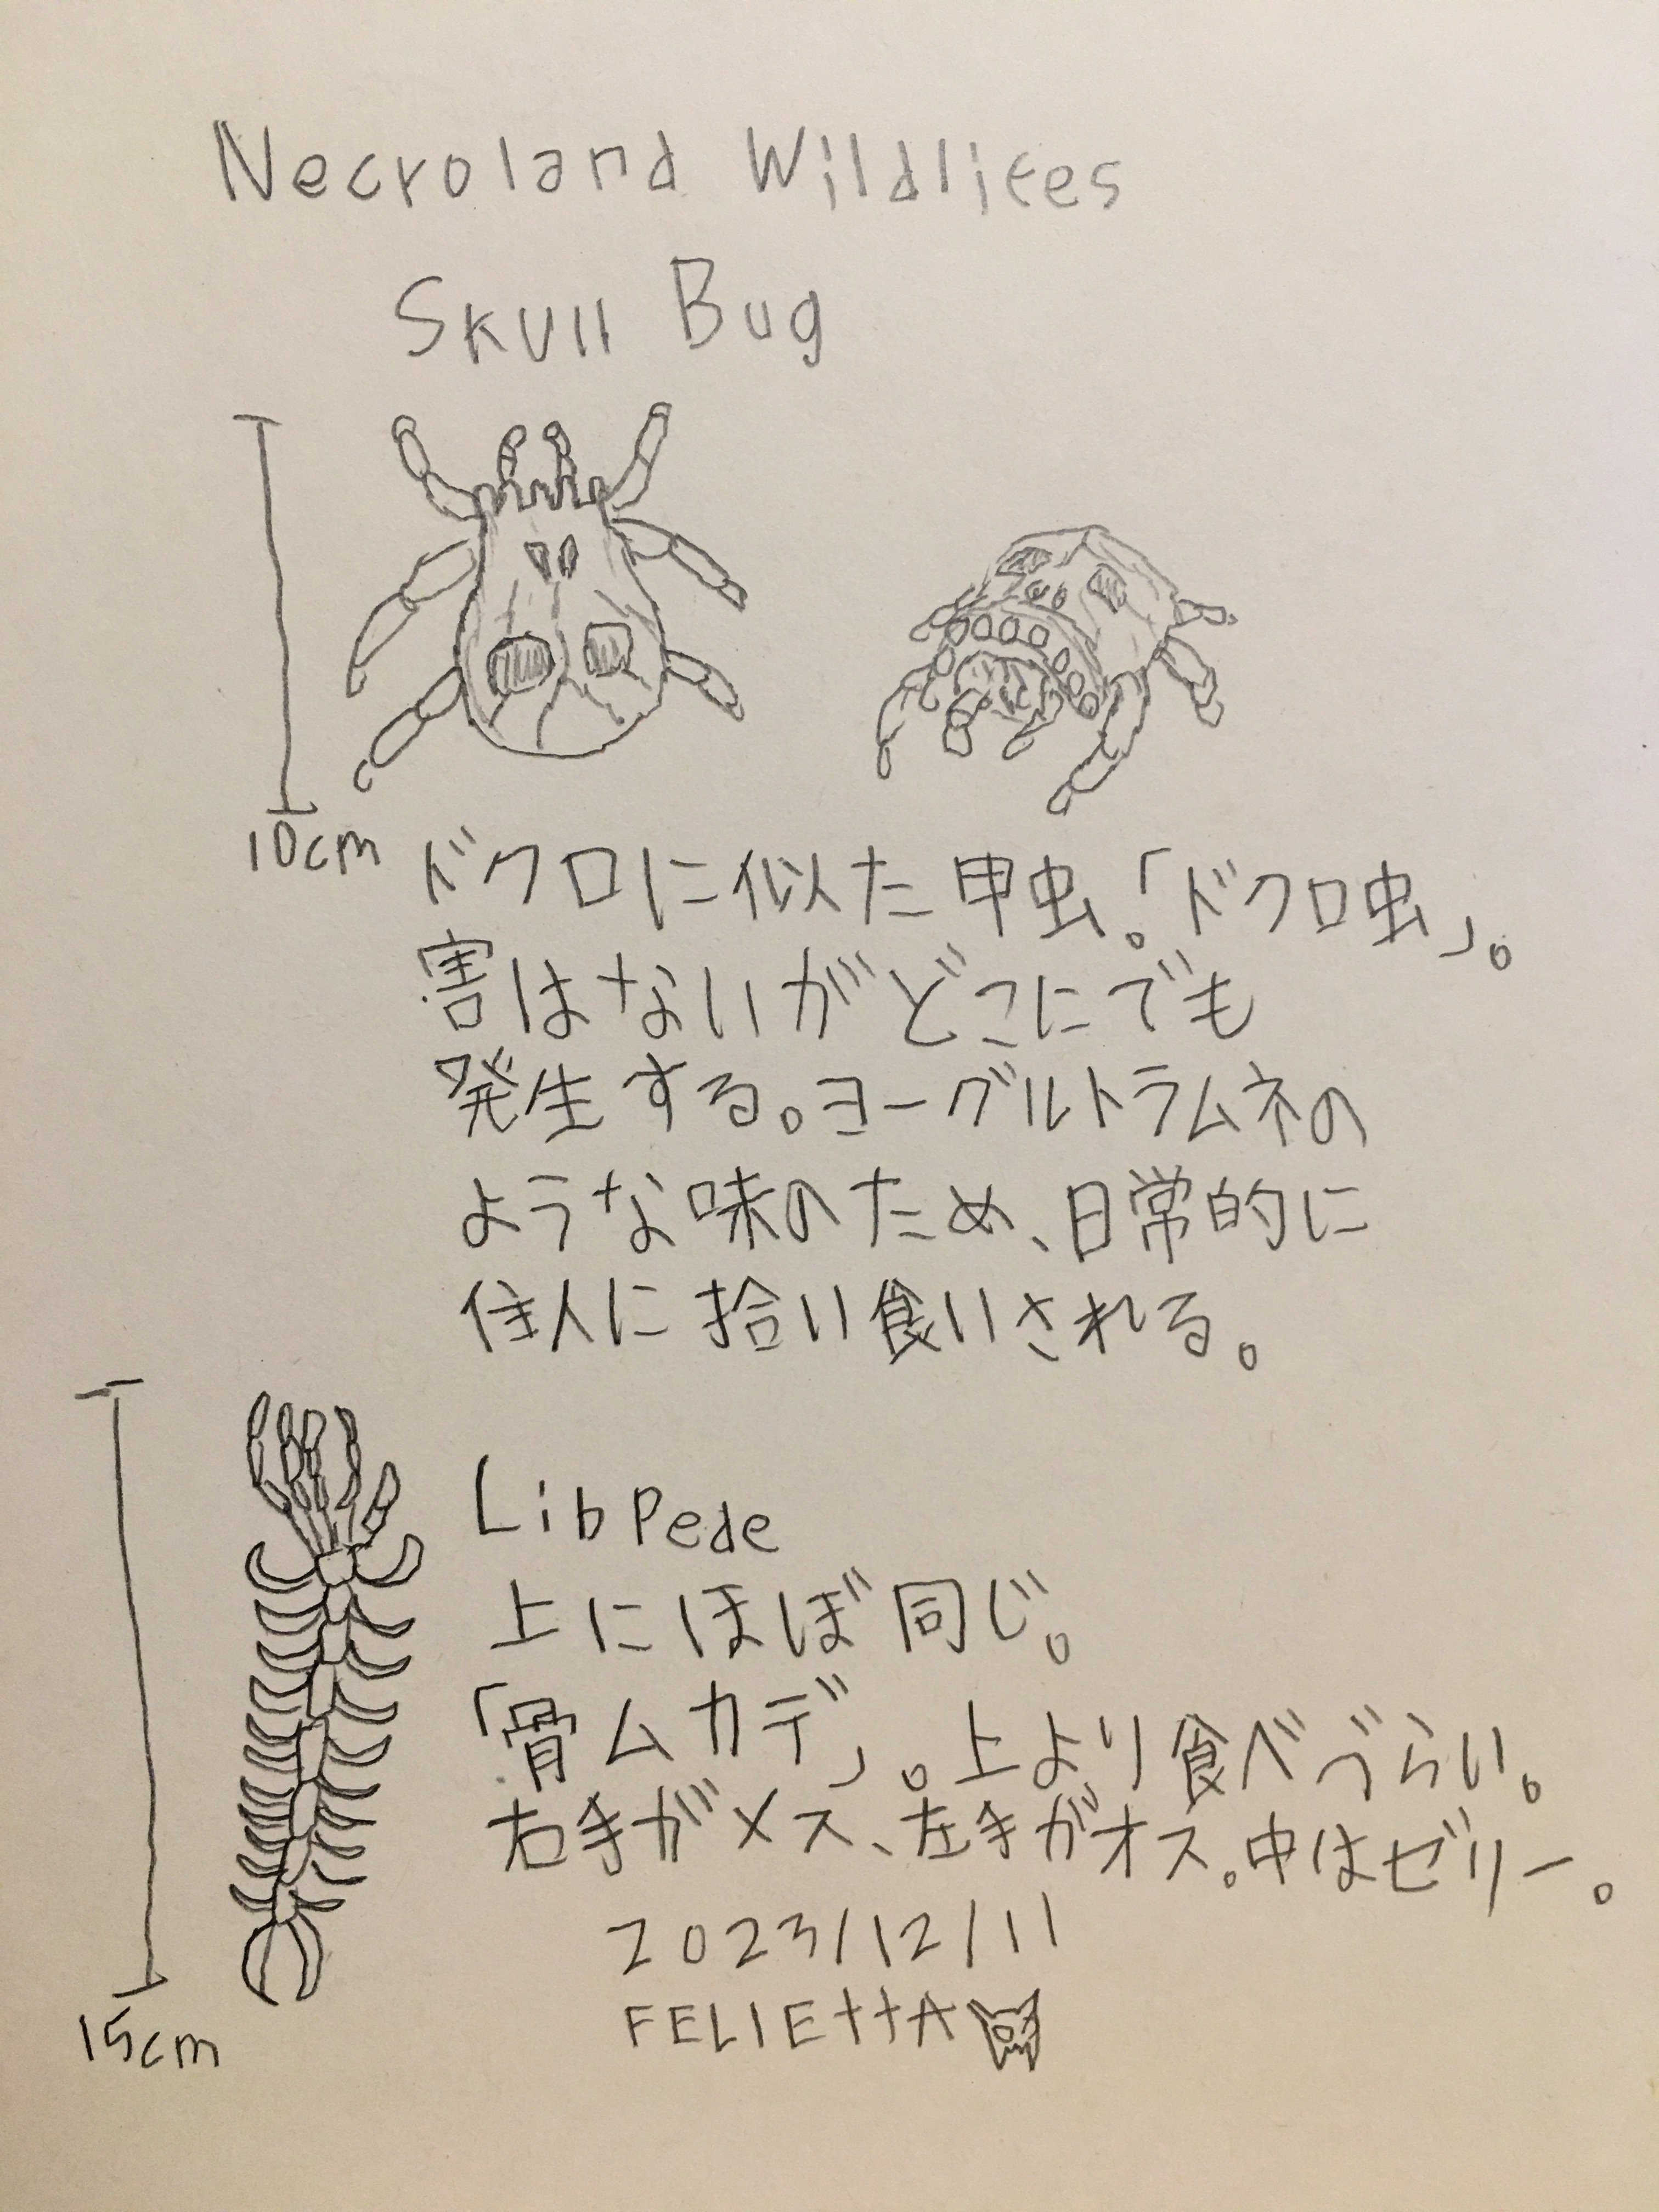 Necroland Wildlifes
Skull Bug
10cm
ドクロに似た甲虫。「ドクロ虫」。
害はないがどこにでも
発生する。ヨーグルトラムネの
ような味のため、日常的に
住人に拾い食いされる。
Libpede
上にほぼ同じ。
「骨ムカデ」。上より食べづらい。
右手がメス、左手がオス。中はゼリー。
2023/12/11
FELIEttA
15cm